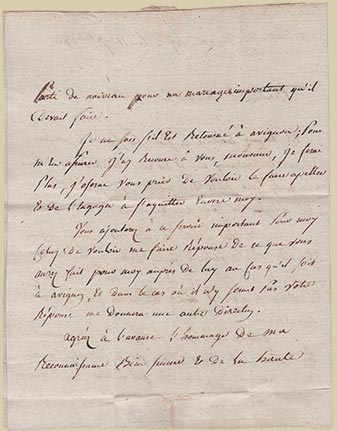 Parti de nouveau pour un mariage important qu'il
devait faire.
Je ne sais s'il est Retourné à avignon; Pour
m'en assurer J'ay Recours à vous, monsieur, Je ferai
Plus, J'oserai vous prier de vouloir le faire apeller
et de l'engager à s'aquitter Envers moy.
Vous ajouterez à ce service important Pour moy
Celuy de vouloir me faire Réponse de ce que vous
aurez fait pour moy auprès de luy au cas qu'il soit
à avignon, Et dans le cas où il n'y serait Pas votre
Réponse me donnera une autre Direction.
agréez à l'avance l'hommage de ma
Reconnaissance Bien sincere et de la haute